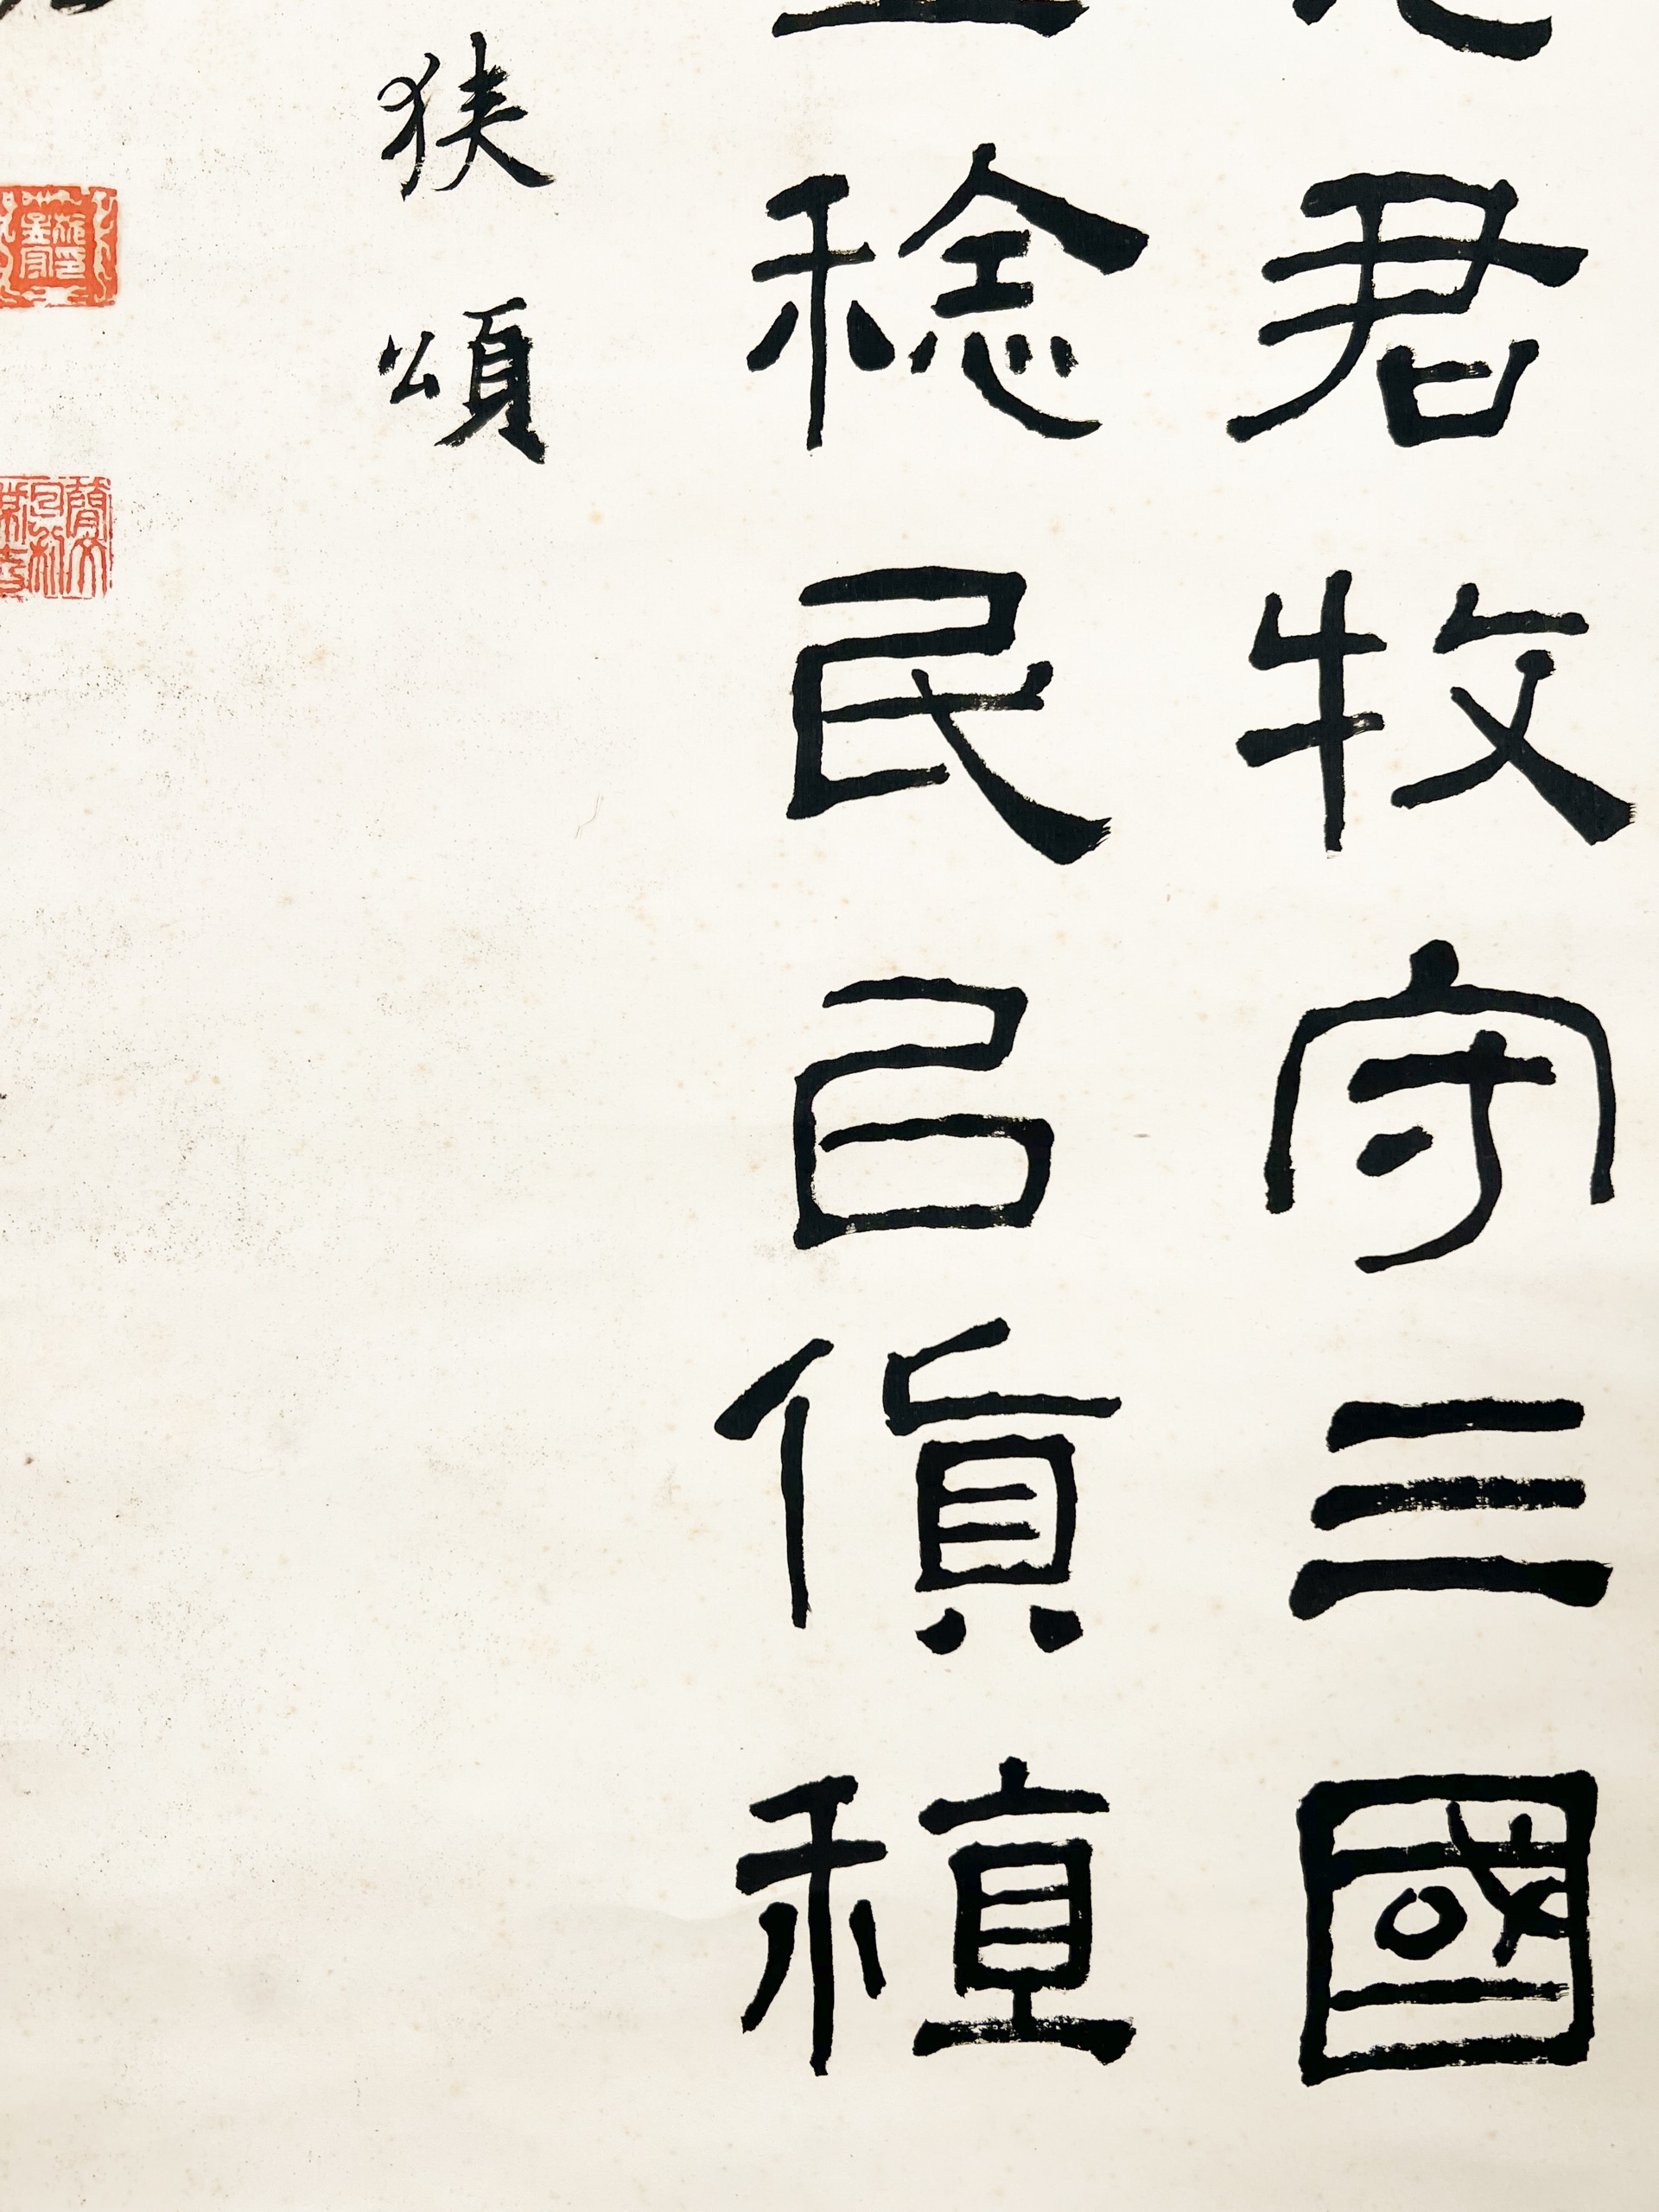 君牧守三國
稔民㠯貨稙
狭頌